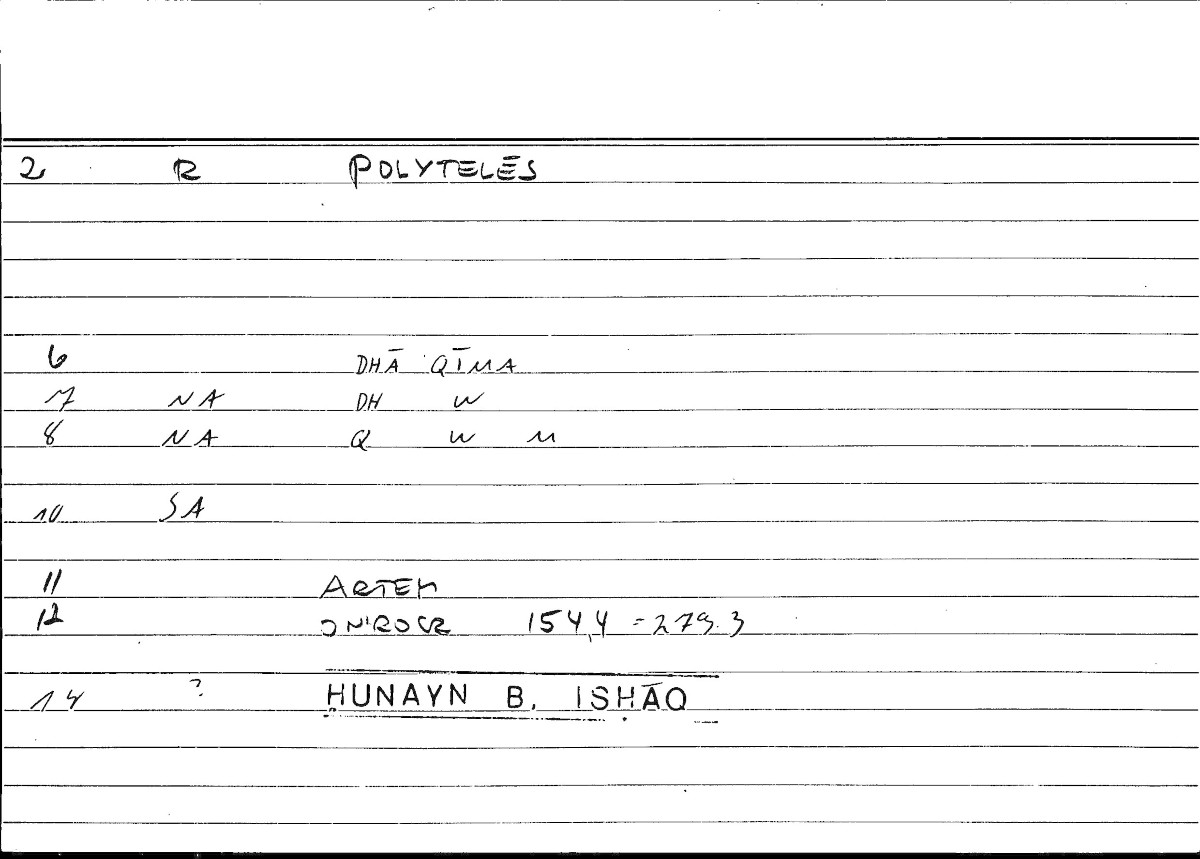 2 R POLYTELĒS
6 DHĀ QĪMA
7 NA DH W
8 NA Q W M
10 SA
11 ARTEM
12 ONIROCR 154,4 = 279.3
14 ? ḤUNAYN B. ISḤĀQ